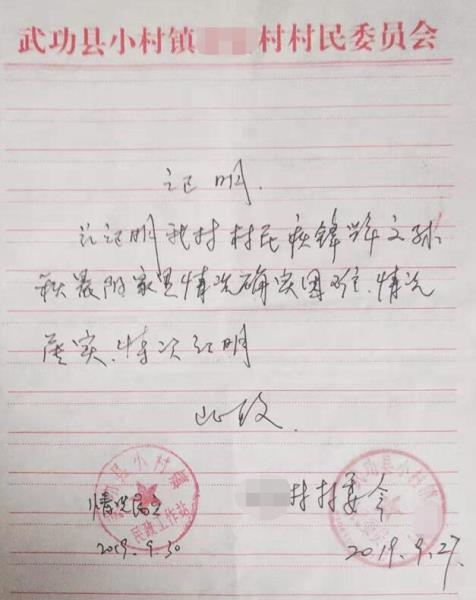 武功县小村镇 村村民委员会
证明.
兹证明我村村民 锋 之孙
家里情况确实困难.情况
属实.特次证明
此致.
情况属实
2019.9.30
村村委会
2019.9.27
武功县小村镇
民政工作站
武功县小村镇